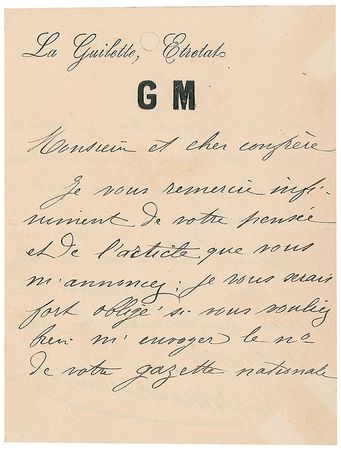 La Guillette, Etretat
G M
Monsieur et cher confrère
Je vous remercie infi-
niment de votre pensée
et de l'article que vous
m'annoncez ; je vous serais
fort obligé si vous vouliez
bien m'envoyer le no
de votre gazette nationale